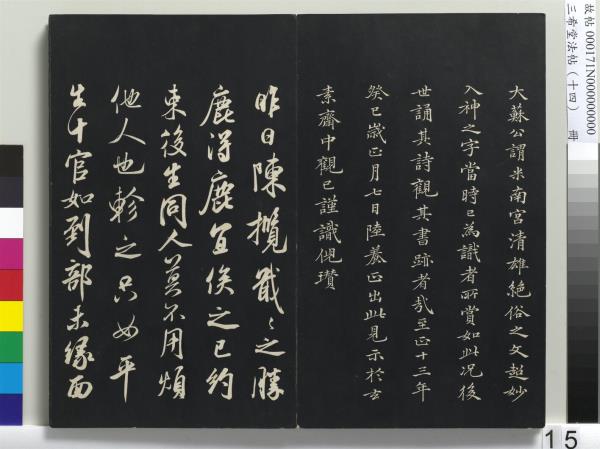 大蘇公謂米南宮清雄絕俗之文超妙
入神之字當時已為識者所賞如此况後
世誦其詩觀其書跡者哉至正十三年
癸巳歲正月七日陸養正出此見示於玄
素齋中觀已謹識倪瓚
昨日陳攬戢〻之勝
鹿得鹿宜俟之已約
束後生同人莫不用煩
他人也軫之只如平
生十官如到部未緣面
故帖 000171N000000000
三希堂法帖（十四）
15